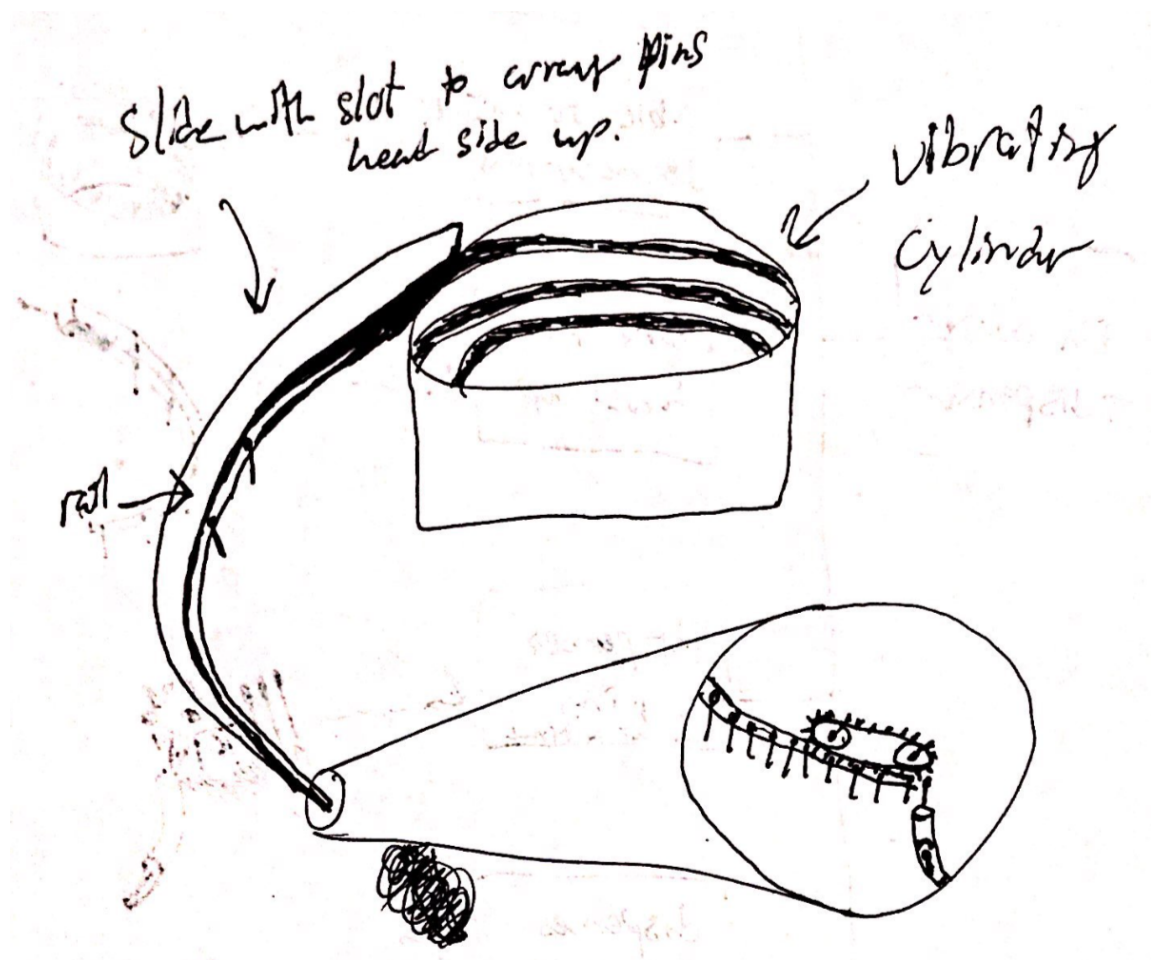 Slide with slot to array pins
head side up.
vibrating
cylinder
rail